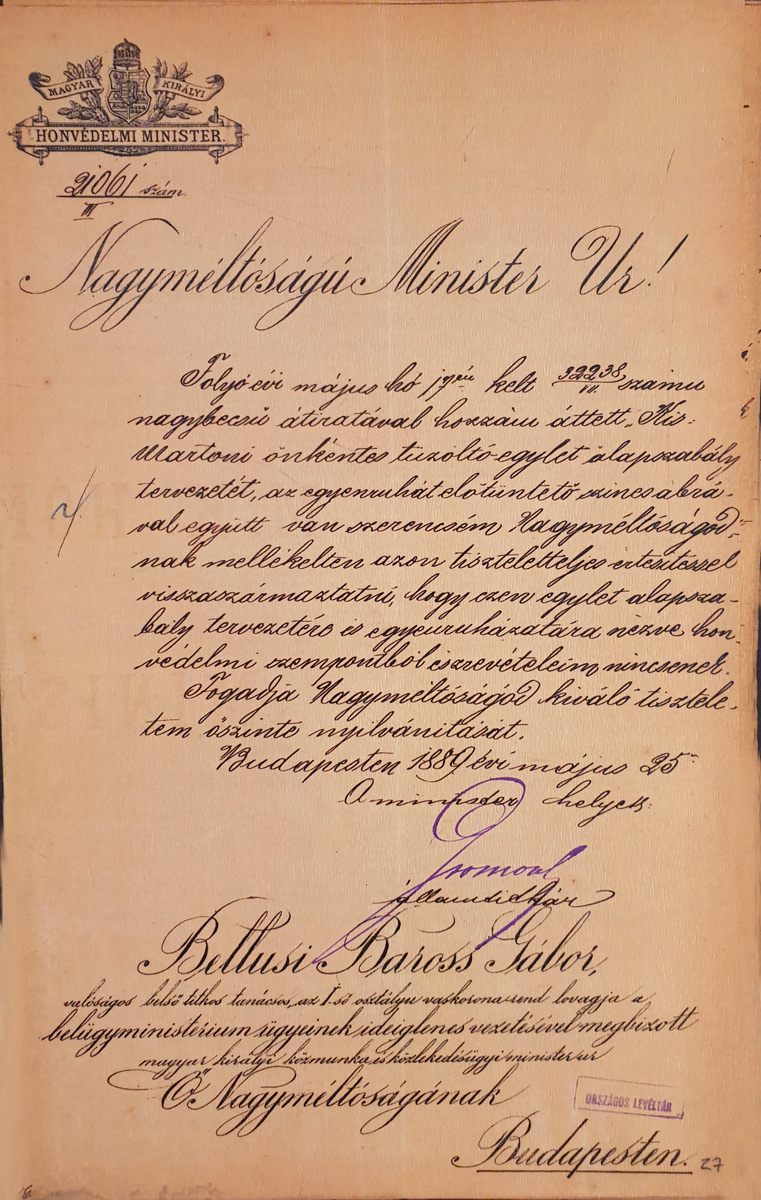 MAGYAR KIRÁLYI
HONVÉDELMI MINISTER.
21061 szám.
III
Nagyméltóságú Minister Ur!
Folyó évi május hó 17én kelt 32238/III. számu
nagybecsü átiratával hozzám áttett „Kis-
Martoni önkéntes tüzoltó egylet alapszabály
tervezetét, az egyenruhát előtüntető szines ábrá-
val együtt van szerencsém Nagyméltóságod-
nak mellékelten azon tiszteletteljes értesitéssel
visszaszármaztatni, hogy ezen egylet alapsza-
bály tervezetére és egyenruházatára nézve hon-
védelmi szempontból észrevételeim nincsenek.
Fogadja Nagyméltóságod kiváló tisztele-
tem őszinte nyilvánitását.
Budapesten 1889 évi május 25
A minister helyett:
államtitkár
Bellusi Baross Gábor,
valóságos belső titkos tanácsos, az I-ső osztályu vaskorona rend lovagja a
belügyministerium ügyeinek ideiglenes vezetésével megbizott
magyar királyi közmunka és közlekedésügyi minister ur
Ő Nagyméltóságának
ORSZÁGOS LEVÉLTÁR
Budapesten. 27